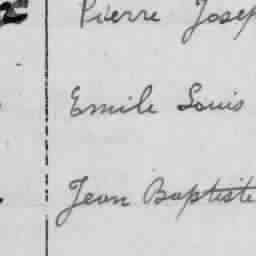 Pierre Josep
Emile Louis
Jean Baptiste